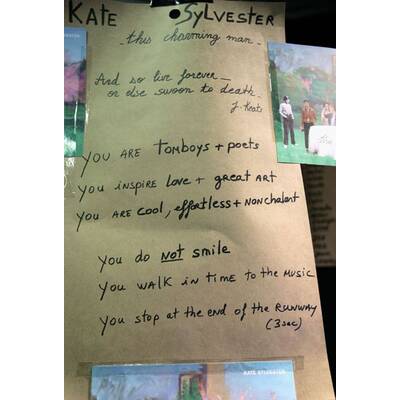 KATE SYLVESTER
this charming man
And so live forever—
or else swoon to death.
J. Keats
YOU ARE TOMBOYS + POETS
YOU INSPIRE LOVE + GREAT ART
YOU ARE COOL, EFFORTLESS + NONCHALANT
YOU do NOT SMILE
YOU WALK IN TIME TO THE MUSIC
YOU STOP AT THE END OF THE RUNWAY
(3 sec)
KATE SYLVESTER